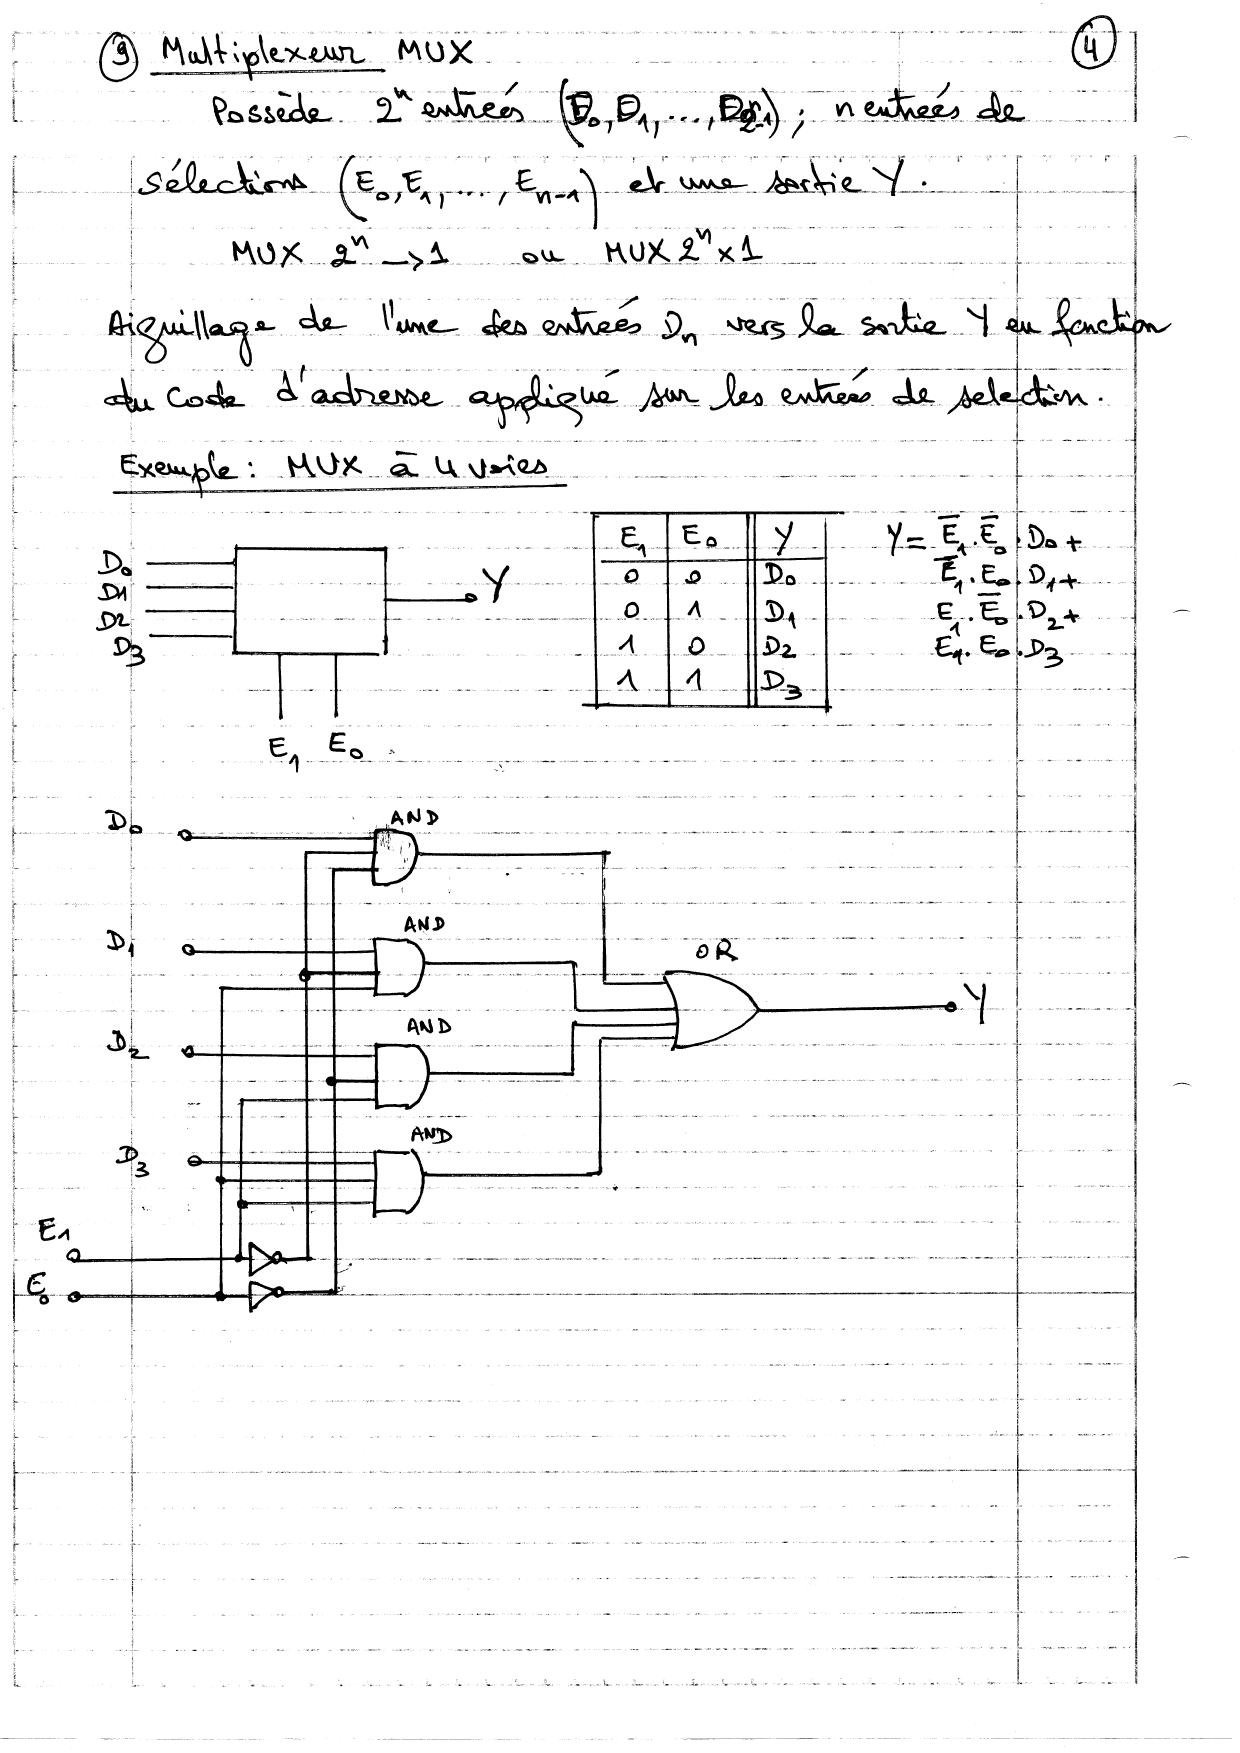 9 Multiplexeur MUX
4
Possède 2ⁿ entrées (D₀, D₁, ..., D₂ⁿ₋₁) ; n entrées de
sélections (E₀, E₁, ..., Eₙ₋₁) et une sortie Y.
MUX 2ⁿ → 1 ou MUX 2ⁿ x 1
Aiguillage de l'une des entrées Dₙ vers la sortie Y en fonction
du code d'adresse appliqué sur les entrées de selection.
Exemple : MUX à 4 voies
D₀
D1
D2
D3
Y
E₁ E₀
E₁ E₀ Y
0 0 D₀
0 1 D₁
1 0 D₂
1 1 D₃
Y = E̅₁ . E̅₀ . D₀ +
E̅₁ . E₀ . D₁ +
E₁ . E̅₀ . D₂ +
E₁ . E₀ . D₃
D₀
AND
D₁
AND
OR
Y
D₂
AND
D₃
AND
E₁
E₀